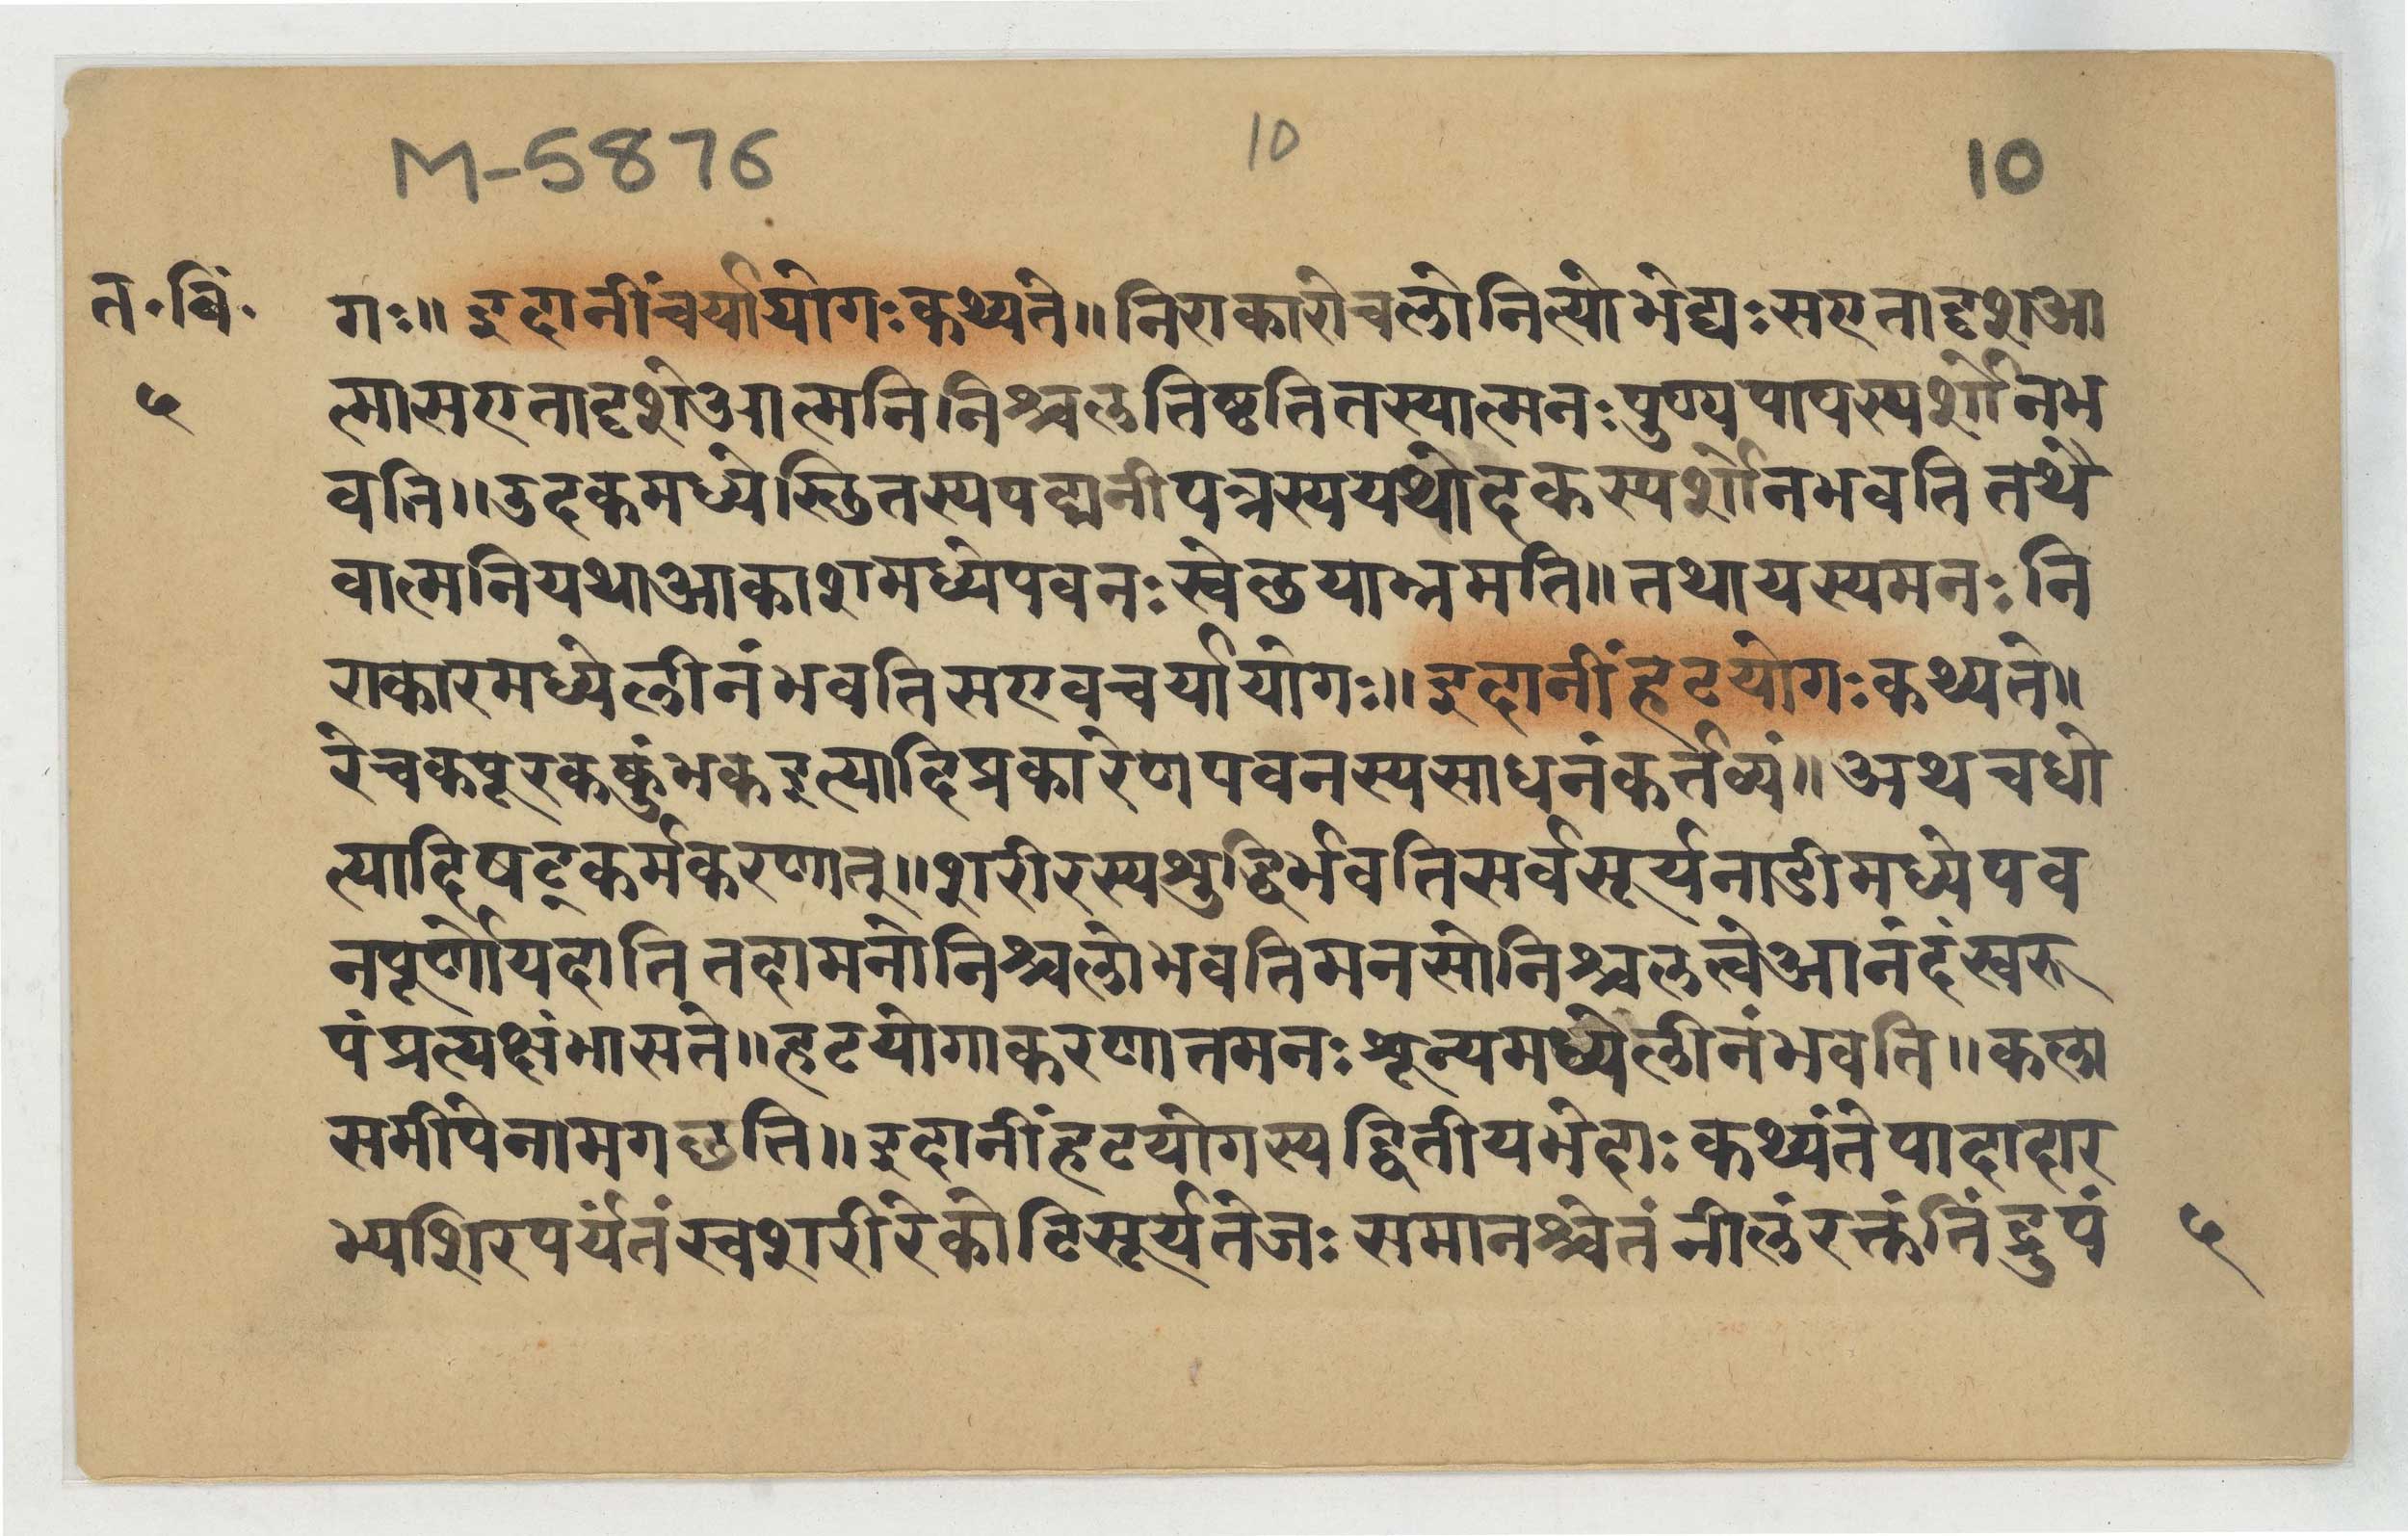 M-5876 10 10
त॰बिं॰
५
गः॥ इदानींचर्यायोगःकथ्यते॥निराकारोचलोनित्योभेद्यःसएतादृशआ
त्मासएतादृशेआत्मनिनिश्चलतिष्टतितस्यात्मनःपुण्यपापस्पर्शोनभ
वति॥उदकमध्येस्छितस्यपद्मनीपत्रस्ययथोदकस्पर्शोनभवतितथै
वात्मनियथाआकाशमध्येपवनःस्वेछयाभ्रमति॥तथायस्यमनःनि
राकारमध्येलीनंभवतिसएवचर्यायोगः॥इदानींहटयोगःकथ्यते॥
रेचकपूरककुंभकइत्यादिप्रकारेणपवनस्यसाधनंकर्तव्यं॥अथचधो
त्यादिषट्कर्मकरणात्॥शरीरस्यशुद्धिर्भवतिसर्वसूर्यनाडीमध्येपव
नपूर्णोयदातितदामनोनिश्चलोभवतिमनसोनिश्चलत्वेआनंदंस्वरू
पंप्रत्यक्षंभासते॥हटयोगाकरणातमनःशून्यमध्येलीनंभवति॥कला
समीपेनामगछति॥इदानींहटयोगस्यद्वितीयभेदाःकथ्यंतेपादादार
भ्यशिरपर्यंतंस्वशरीरेकोटिसूर्यतेजःसमानश्वेतंनीलंरक्तंतिंद्रुपं
५